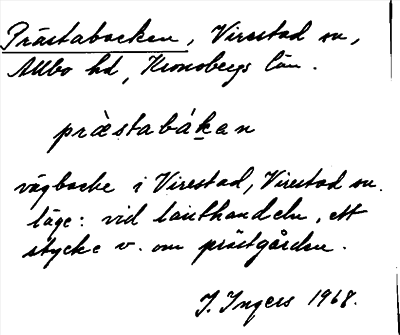 Prästabacken, Virestad sn,
Allbo hd, Kronobergs län.
præ̀stabákan
vägbacke i Virestad, Virestad sn.
läge: vid lanthandeln, ett
stycke v. om prästgården.
I. Ingers 1968.